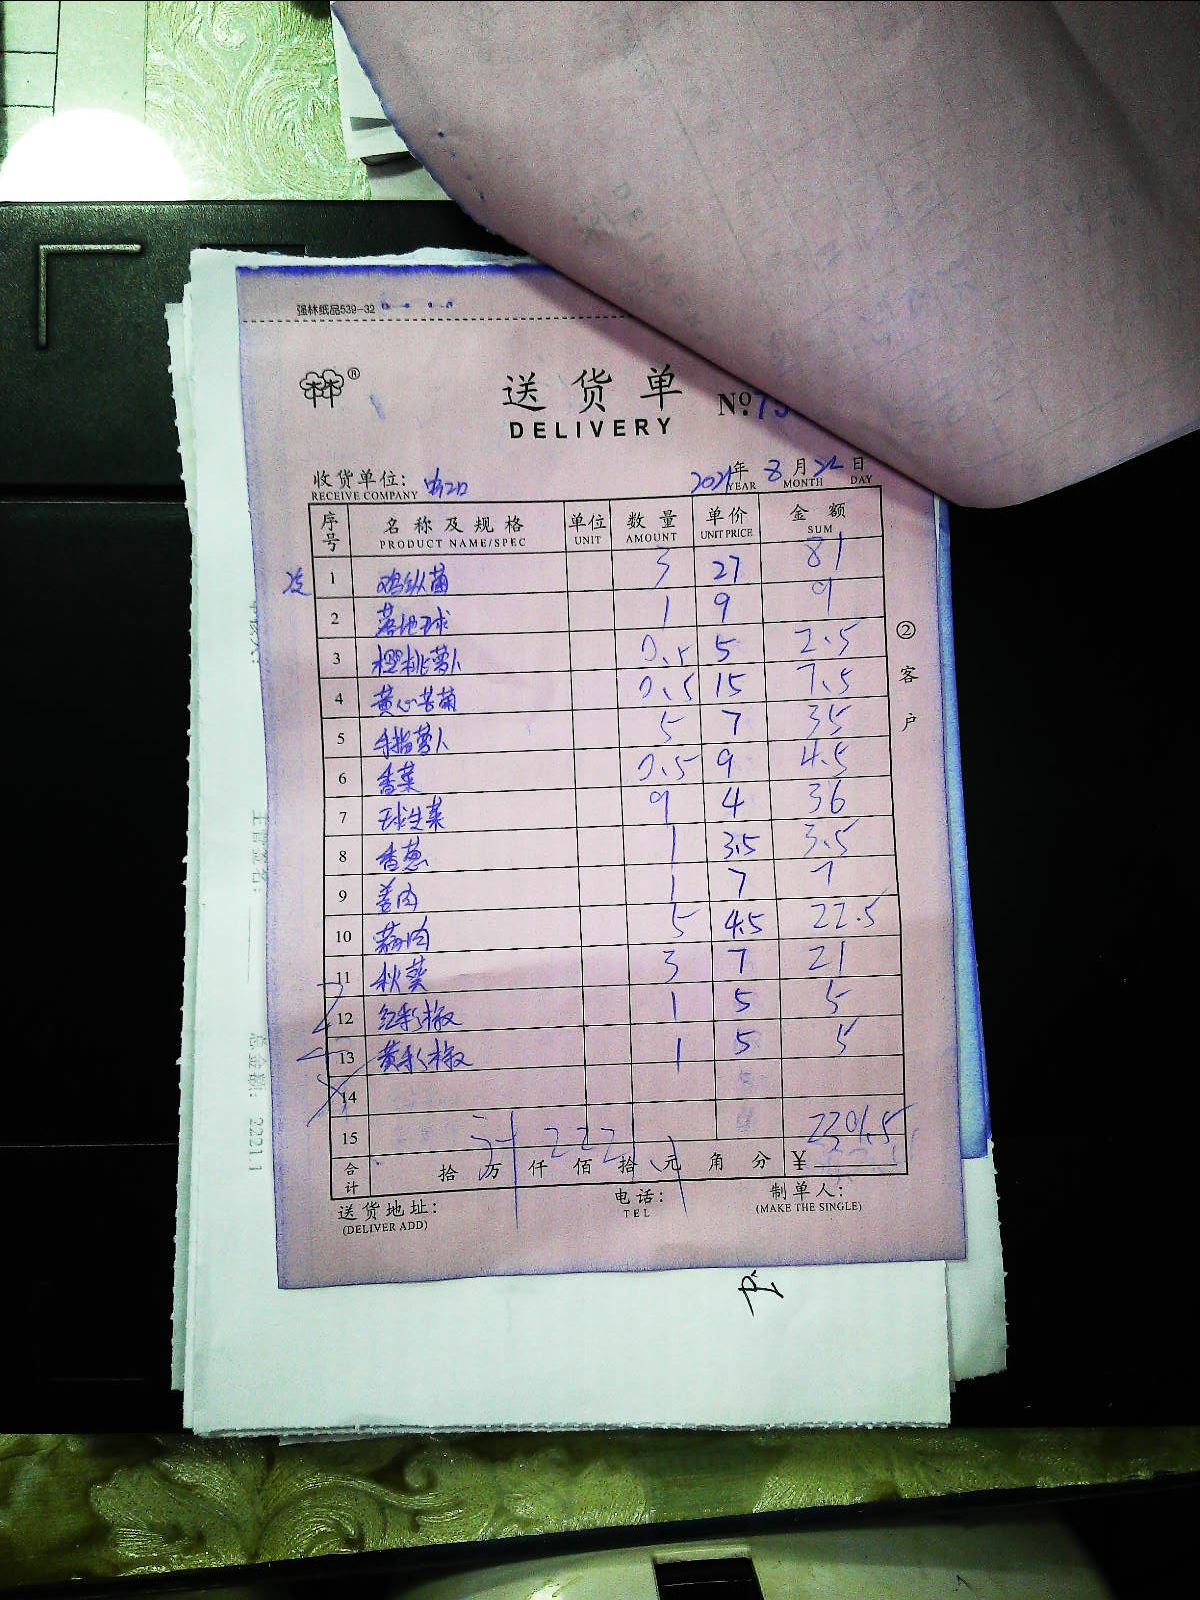 强林纸品539-32
林林®
送货单
DELIVERY
№.
收货单位:
RECEIVE COMPANY
2021年 8月22日
YEAR MONTH DAY
序号 名称及规格 单位 数量 单价 金额
PRODUCT NAME/SPEC UNIT AMOUNT UNIT PRICE SUM
1 鸡纵菌 3 27 81
2 落地球 1 9 9
3 樱桃萝卜 0.5 5 2.5
4 黄心苦菊 0.5 15 7.5
5 手指萝卜 5 7 35
6 香菜 0.5 9 4.5
7 球生菜 9 4 36
8 香葱 1 3.5 3.5
9 姜肉 1 7 7
10 蒜肉 5 4.5 22.5
11 秋葵 3 7 21
12 红彩椒 1 5 5
13 黄彩椒 1 5 5
14
15
合计 拾 万 仟 佰 拾 元 角 分 ¥
②客户
送货地址:
(DELIVER ADD)
电话:
TEL
制单人:
(MAKE THE SINGLE)
总金额: 2221.1